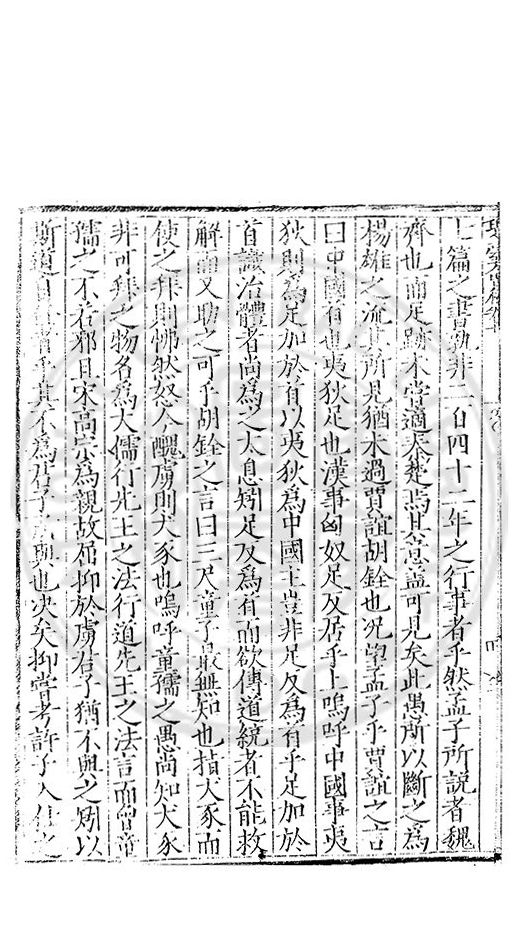 七篇之書孰非二百四十二年之行事者乎然孟子所說者魏
齊也而足跡未嘗適秦楚焉其意蓋可見矣此愚所以斷之為
楊雄之流其所見猶未過賈誼胡銓也况望孟子乎賈誼之言
曰中國首也夷狄足也漢事匈奴足反居乎上嗚呼中國事夷
狄則為足加於首以夷狄為中國主豈非足反為首乎足加於
首識治體者尚為之太息矧足反為首而欲傳道統者不能救
解而又助之可乎胡銓之言曰三尺童子最無知也指犬豕而
使之拜則怫然怒今醜虜則犬豕也嗚呼童孺之愚尚知犬豕
非可拜之物名為大儒行先王之法行道先王之法言而曾童
孺之不若邪且宋高宗為親故屈抑於虜君子猶不與之矧以
斯道自任者乎其不為君子所與也决矣抑嘗考許子入仕之